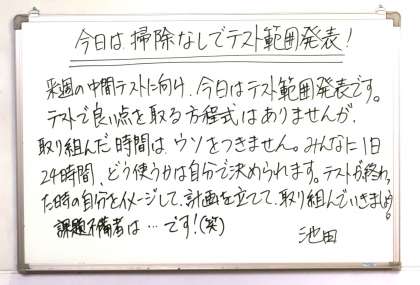 今日は掃除なしでテスト範囲発表!
来週の中間テストに向け、今日はテスト範囲発表です。
テストで良い点を取る方程式はありませんが、
取り組んだ時間はウソをつきません。みんなに1日
24時間、どう使うかは自分で決められます。テストが終わっ
た時の自分をイメージして、計画を立てて、取り組んでいきましょう。
課題不備者は…です!(笑)
池田